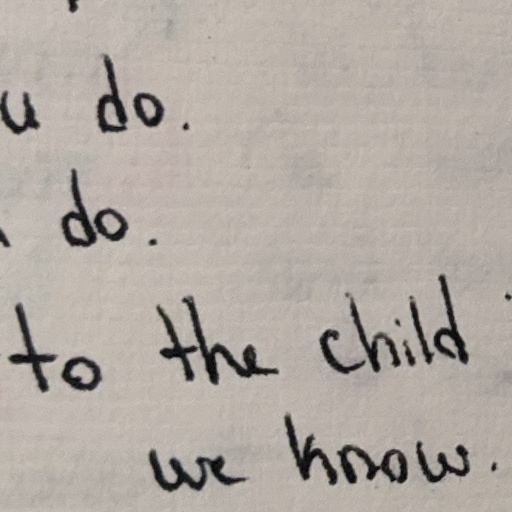 u do.
do.
to the child
we know.